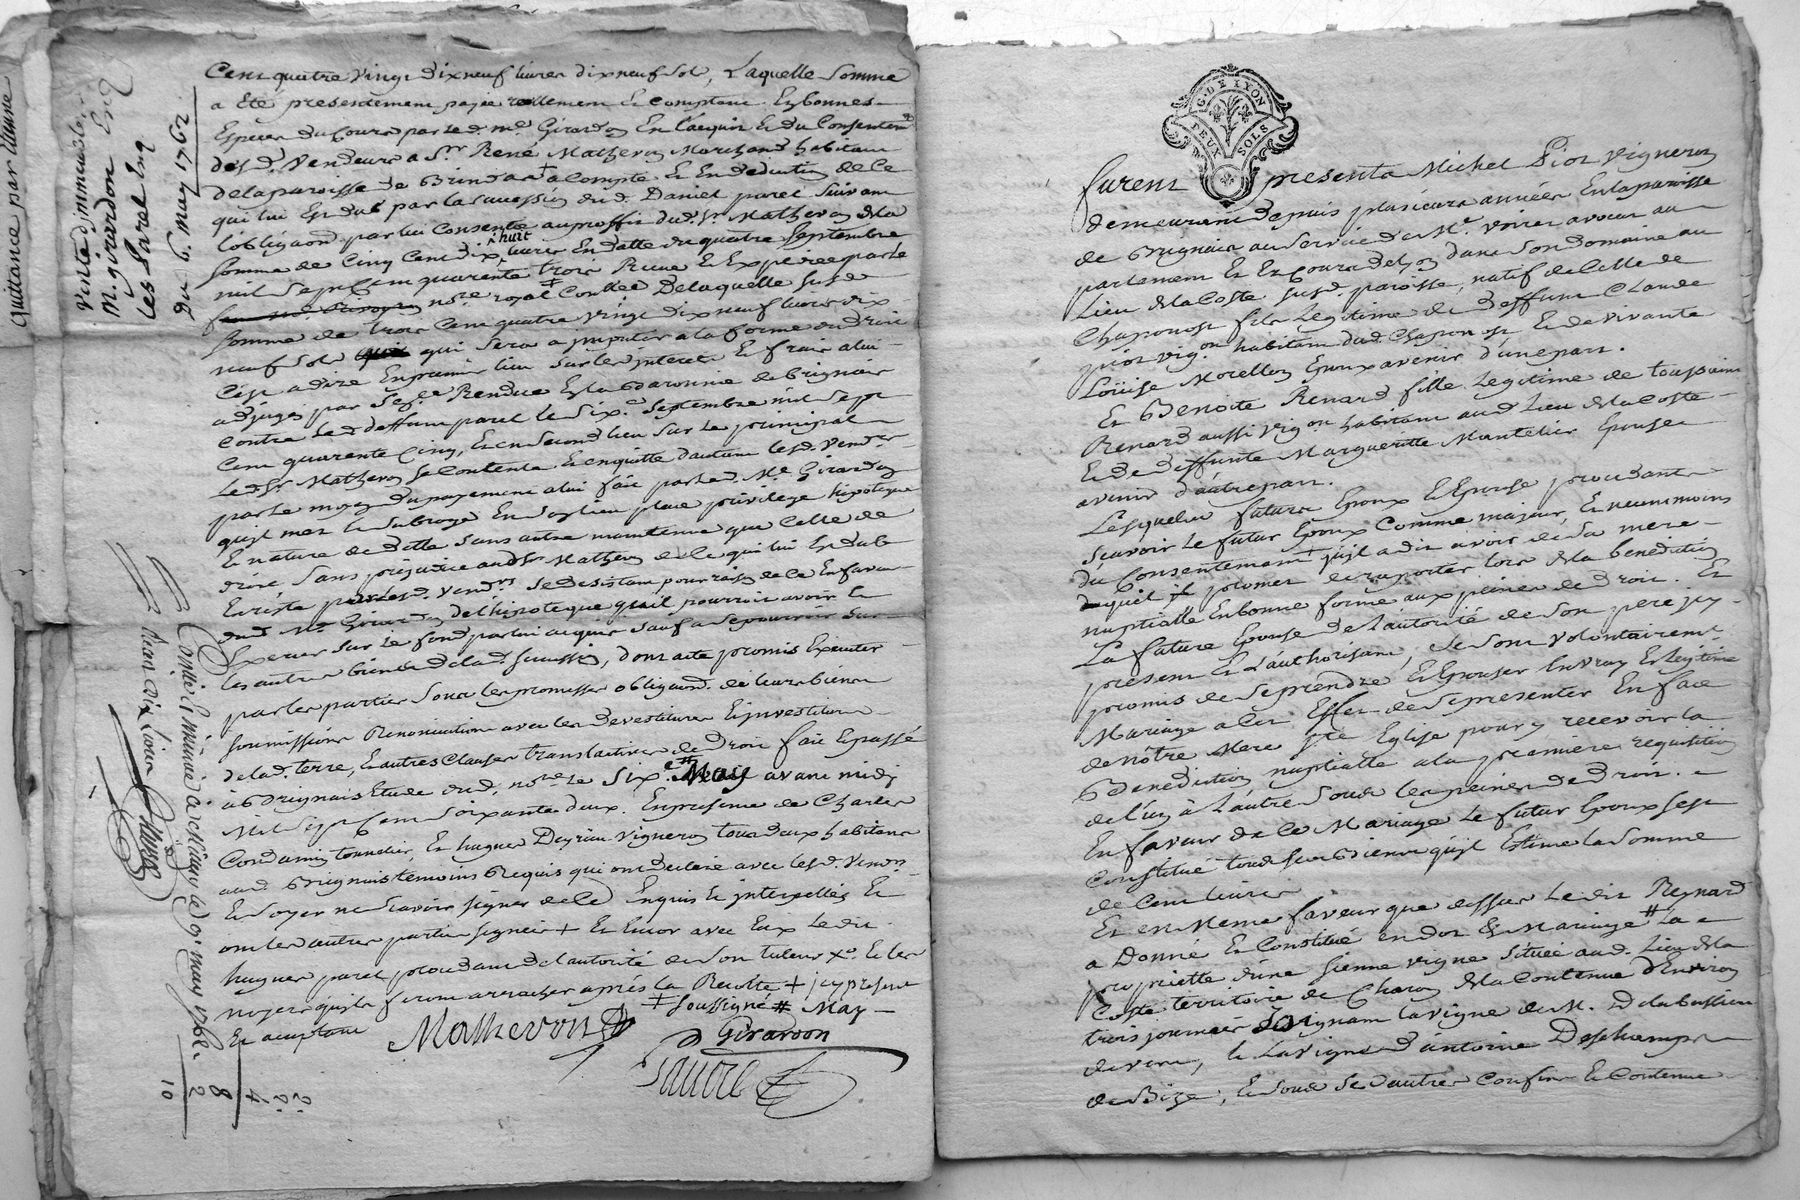 Quittance par Vienne
Vente d'immeubles
M. girardon Enq
les parel Enq
Du 6. May 1762
Cent quatre vingt dix neuf livres dix neuf sol, Laquelle somme
a Eté presentement payée reellement et comptant En bonnes
Especes du Cours par led. me. Girardon En l'acquit et du Consentemt
desd. Vendeurs a Sr. René Mathevon Marchand habitant
de la paroisse de Brindas + a Compte et En deduction de ce
qui lui Est dub par la succession dud. Daniel parel suivant
l'obligaon. par lui Consentie au proffit dud. Sr. Mathevon de la
somme de Cinq Cent dix huit livres En datte du quatre septembre
mil sept Cent quarante trois Reçue et Expediée par le
nore. royal ‡ Conttlée De laquelle susd.
somme de trois Cent quatre vingt dix neuf livres dix
neuf sol qui sera a imputer a la forme du droit
C'est a dire En premier lieu sur les interets et frais a lui
adjugés par Sentce Rendue En la Baronnie de brignais
Contre led. deffunt parel le six. septembre mil sept
Cent quarante Cinq, et en second lieu sur le principal
Led. Sr. Mathevon se contente et en quitte d'autant lesd. Vendrs.
par le moyen du payement a lui fait par led. Me. Girardon
qu'il met et subroge En son lieu place privilege hipoteque
et nature de dette sans autre maintenue que celle de
droit sans prejudice aud. Sr. Mathevon de ce qui lui Est dub
de reste par lesd. vendrs se desistant pour raison de ce En faveur
dud. Me. Girardon de l'hipoteque qu'il pourroit avoir et
Exercer sur le fond par lui acquis sauf a se pourvoir sur
les autres biens de lad. succession, dont acte promis Executer
par les parties sous les promesses obligaons. de leurs biens
soumissions Renonciation avec les devestitures Et investitures
de lad. terre, Et autres clauses translatives de droit fait Et passé
à Brignais Etude dud. nore le six.e # May avant midy
Mil sept Cent soixante deux. En presence de Charles
Condamin tonnelier, Et hugues Deyrieu vigneron tous deux habitans
aud. Brignais temoins Requis qui ont declaré avec lesd. Vendrs.
et Noyer ne sçavoir signer de ce Enquis et interpellés Et
ont les autres parties signées + Et Encor avec Eux le dit
hugues parel procedant de l'autorité de son tuteur X. et les
noyers qu'ils feront arracher après la Recolte + icy present
Et acceptant ‡ soussigné # May
Mathevon
Girardon
Contllé et insinué à
may 1762.
Reçu dix Livres
8
2
10
G. DE LYON
DEUX SOLS
furent presents Michel Piot vigneron
demeurant depuis plusieurs années En la paroisse
de Brignais au service de Mr. Voiret avocat au
parlement Et Es Cours de Lyon dans son domaine au
Lieu de la Coste susd. paroisse, natif de Celle de
Chaponost fils Legitime de deffunt Claude
piot vigon habitant dud. Chaponost Et de vivante
Loüise Morellon Epoux avenir d'une part.
Et Benoite Renard fille Legitime de toussaint
Renard aussi vigon habitant aud. Lieu de la Coste
Et de deffunte Marguerite Mantelier Epouse
avenir d'autre part.
Lesquels futurs Epoux et Epouse procedants
sçavoir Le futur Epoux Comme majeur, et neanmoins
du Consentement qu'il a dit avoir de sa mere
duquel il promet de raporter lors de la benediction
nuptialle En bonne forme aux peines de droit. Et
La future Epouse de l'autorité de son pere icy
present et L'authorisant, se sont volontairemt.
promis de se prendre et Epouser En vray Et Legitime
Mariage a cet Effet de se presenter En face
de nôtre Mere Ste Eglise pour y recevoir la
Benediction nuptialle a la premiere requisition
de l'un à l'autre sous les peines de droit.
En faveur de ce Mariage Le futur Epoux s'est
Constitué tous ses Biens qu'il Estime la somme
de Cent livres
Et en Meme faveur que dessus Le dit Reynard
a Donné Et Constitué en dot de Mariage # La
proprieté d'une sienne vigne située aud. Lieu de la
Coste territoire de Charon de la Contenue d'Environ
trois journées joignant la vigne de M. Delabussiere
de vent, et la vigne d'antoine Deschamps
de Bize, et sous ses autres Confins et Contenue